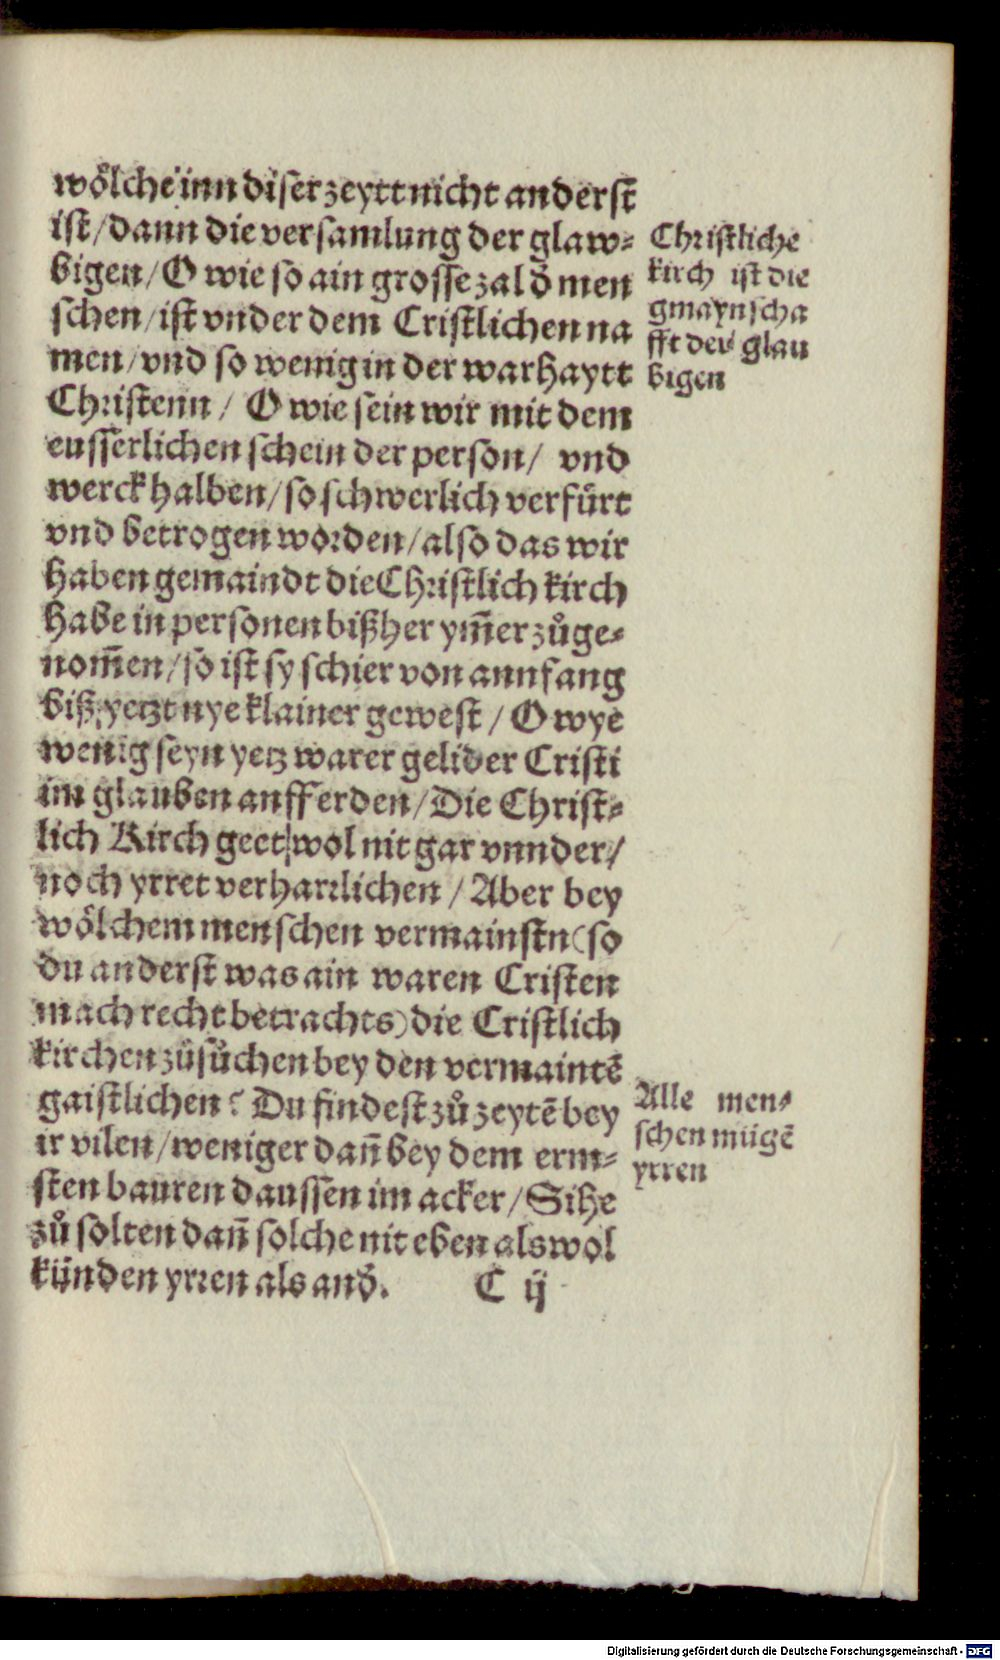 woͤlche inn diser zeytt nicht anderst
ist/dann die versamlung der glaw⸗
bigen/O wie so ain grosse zal ð men
schen/ist vnder dem Cristlichen na
men/vnd so wenig in der warhaytt
Christenn/ O wie sein wir mit dem
eusserlichen schein der person/ vnd
werck halben/so schwerlich verfuͤrt
vnd betrogen worden/also das wir
haben gemaindt die Christlich kirch
habe in personen bißher ym̃er zůge⸗
nom̃en/so ist sy schier von annfang
biß yetzt nye klainer gewest/O wye
wenig seyn yetz warer gelider Cristi
im glauben anff erden/Die Christ⸗
lich Kirch geet wol nit gar vnnder/
noch yrret verharrlichen/Aber bey
woͤlchem menschen vermainstn(so
du anderst was ain waren Cristen
mach recht betrachts)die Cristlich
kirchen zůsůchen bey den vermaintẽ
gaistlichen? Du findest zů zeytẽ bey
ir vilen/weniger dañ bey dem erm⸗
sten bauren daussen im acker/Sihe
zů solten dañ solche nit eben als wol
künden yrren als anð.
C ij
Christliche
kirch ist die
gmaynscha
fft der glau
bigen
Alle men⸗
schen mügẽ
yrren
Digitalisierung gefördert durch die Deutsche Forschungsgemeinschaft - DFG